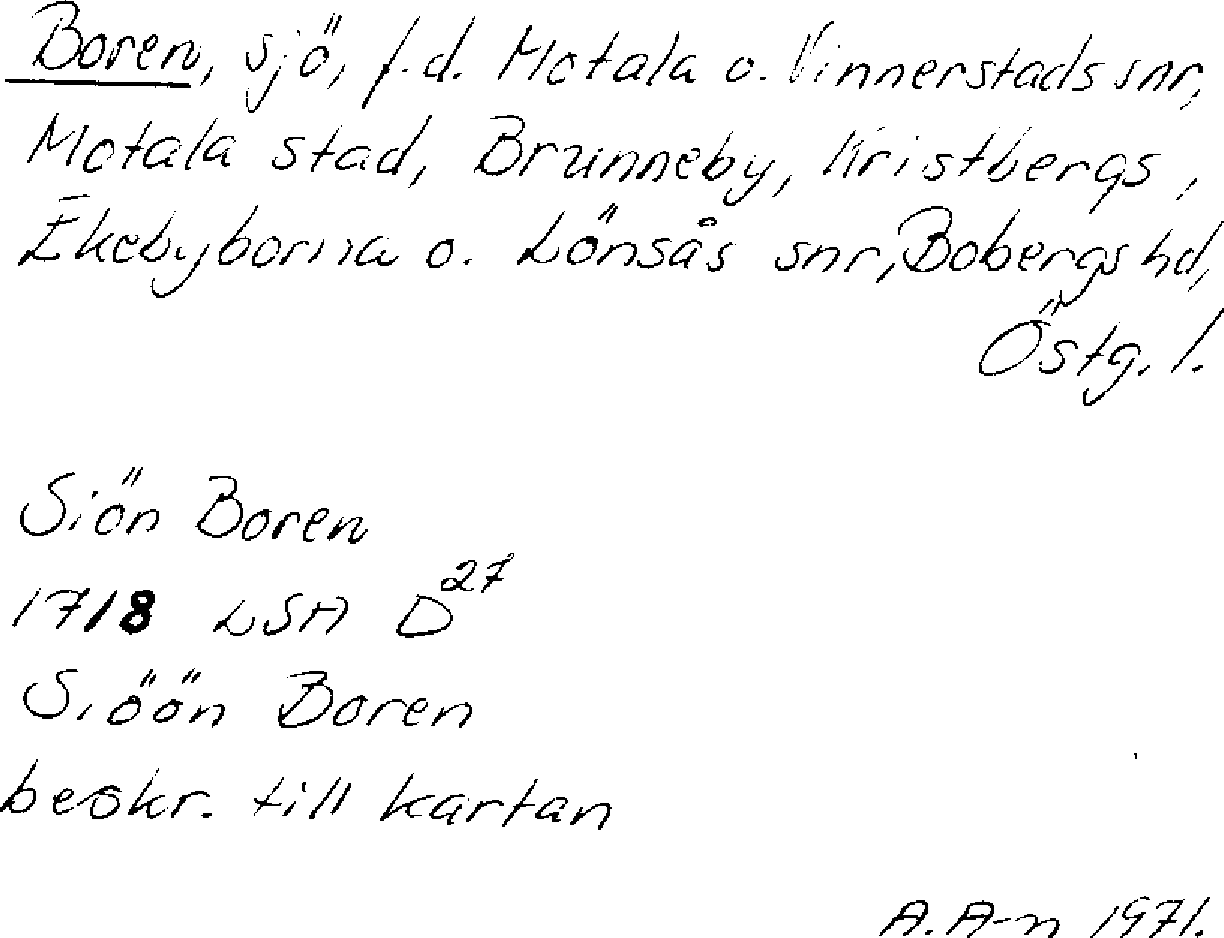 Boren, sjö, f.d. Motala o. Vinnerstads snr,
Motala stad, Brunneby, Kristbergs,
Ekebyborna o. Lönsås snr, Bobergs hd,
Östg. l.
Siön Boren
1718 LSA D27
Siöön Boren
beskr. till kartan
A. A-n 1971.